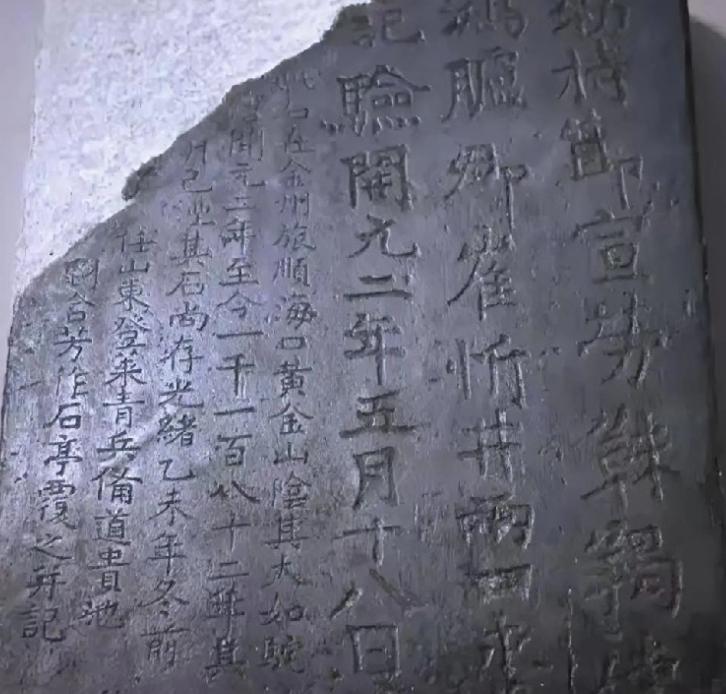 勅持節宣勞靺鞨使
鴻臚卿崔忻井兩口永
記驗開元二年五月十八日
此石在金州旅順海口黃金山陰其大如駝
開元二年至今一千一百八十二年其
井已湮其石尚存光緒乙未年冬前
任山東登萊青兵備道貴池
劉含芳作石亭覆之并記